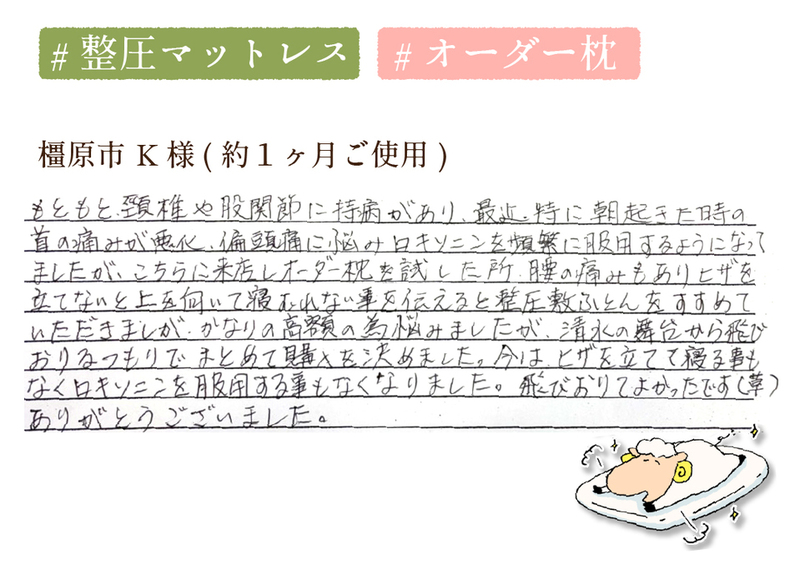 # 整圧マットレス # オーダー枕
橿原市 K 様 ( 約１ヶ月ご使用 )
もともと、頸椎や股関節に持病があり、最近、特に朝起きた時の
首の痛みが悪化、偏頭痛に悩みロキソニンを頻繁に服用するようになって
ましたが、こちらに来店しオーダー枕を試した所、腰の痛みもありヒザを
立てないと上を向いて寝むれない事を伝えると整圧敷ふとんをすすめて
いただきましが、かなりの高額の為悩みましたが、清水の舞台から飛び
おりるつもりでまとめて購入を決めました。今は、ヒザを立てて寝る事も
なくロキソニンを服用する事もなくなりました。飛びおりてよかったです(草)
ありがとうございました。